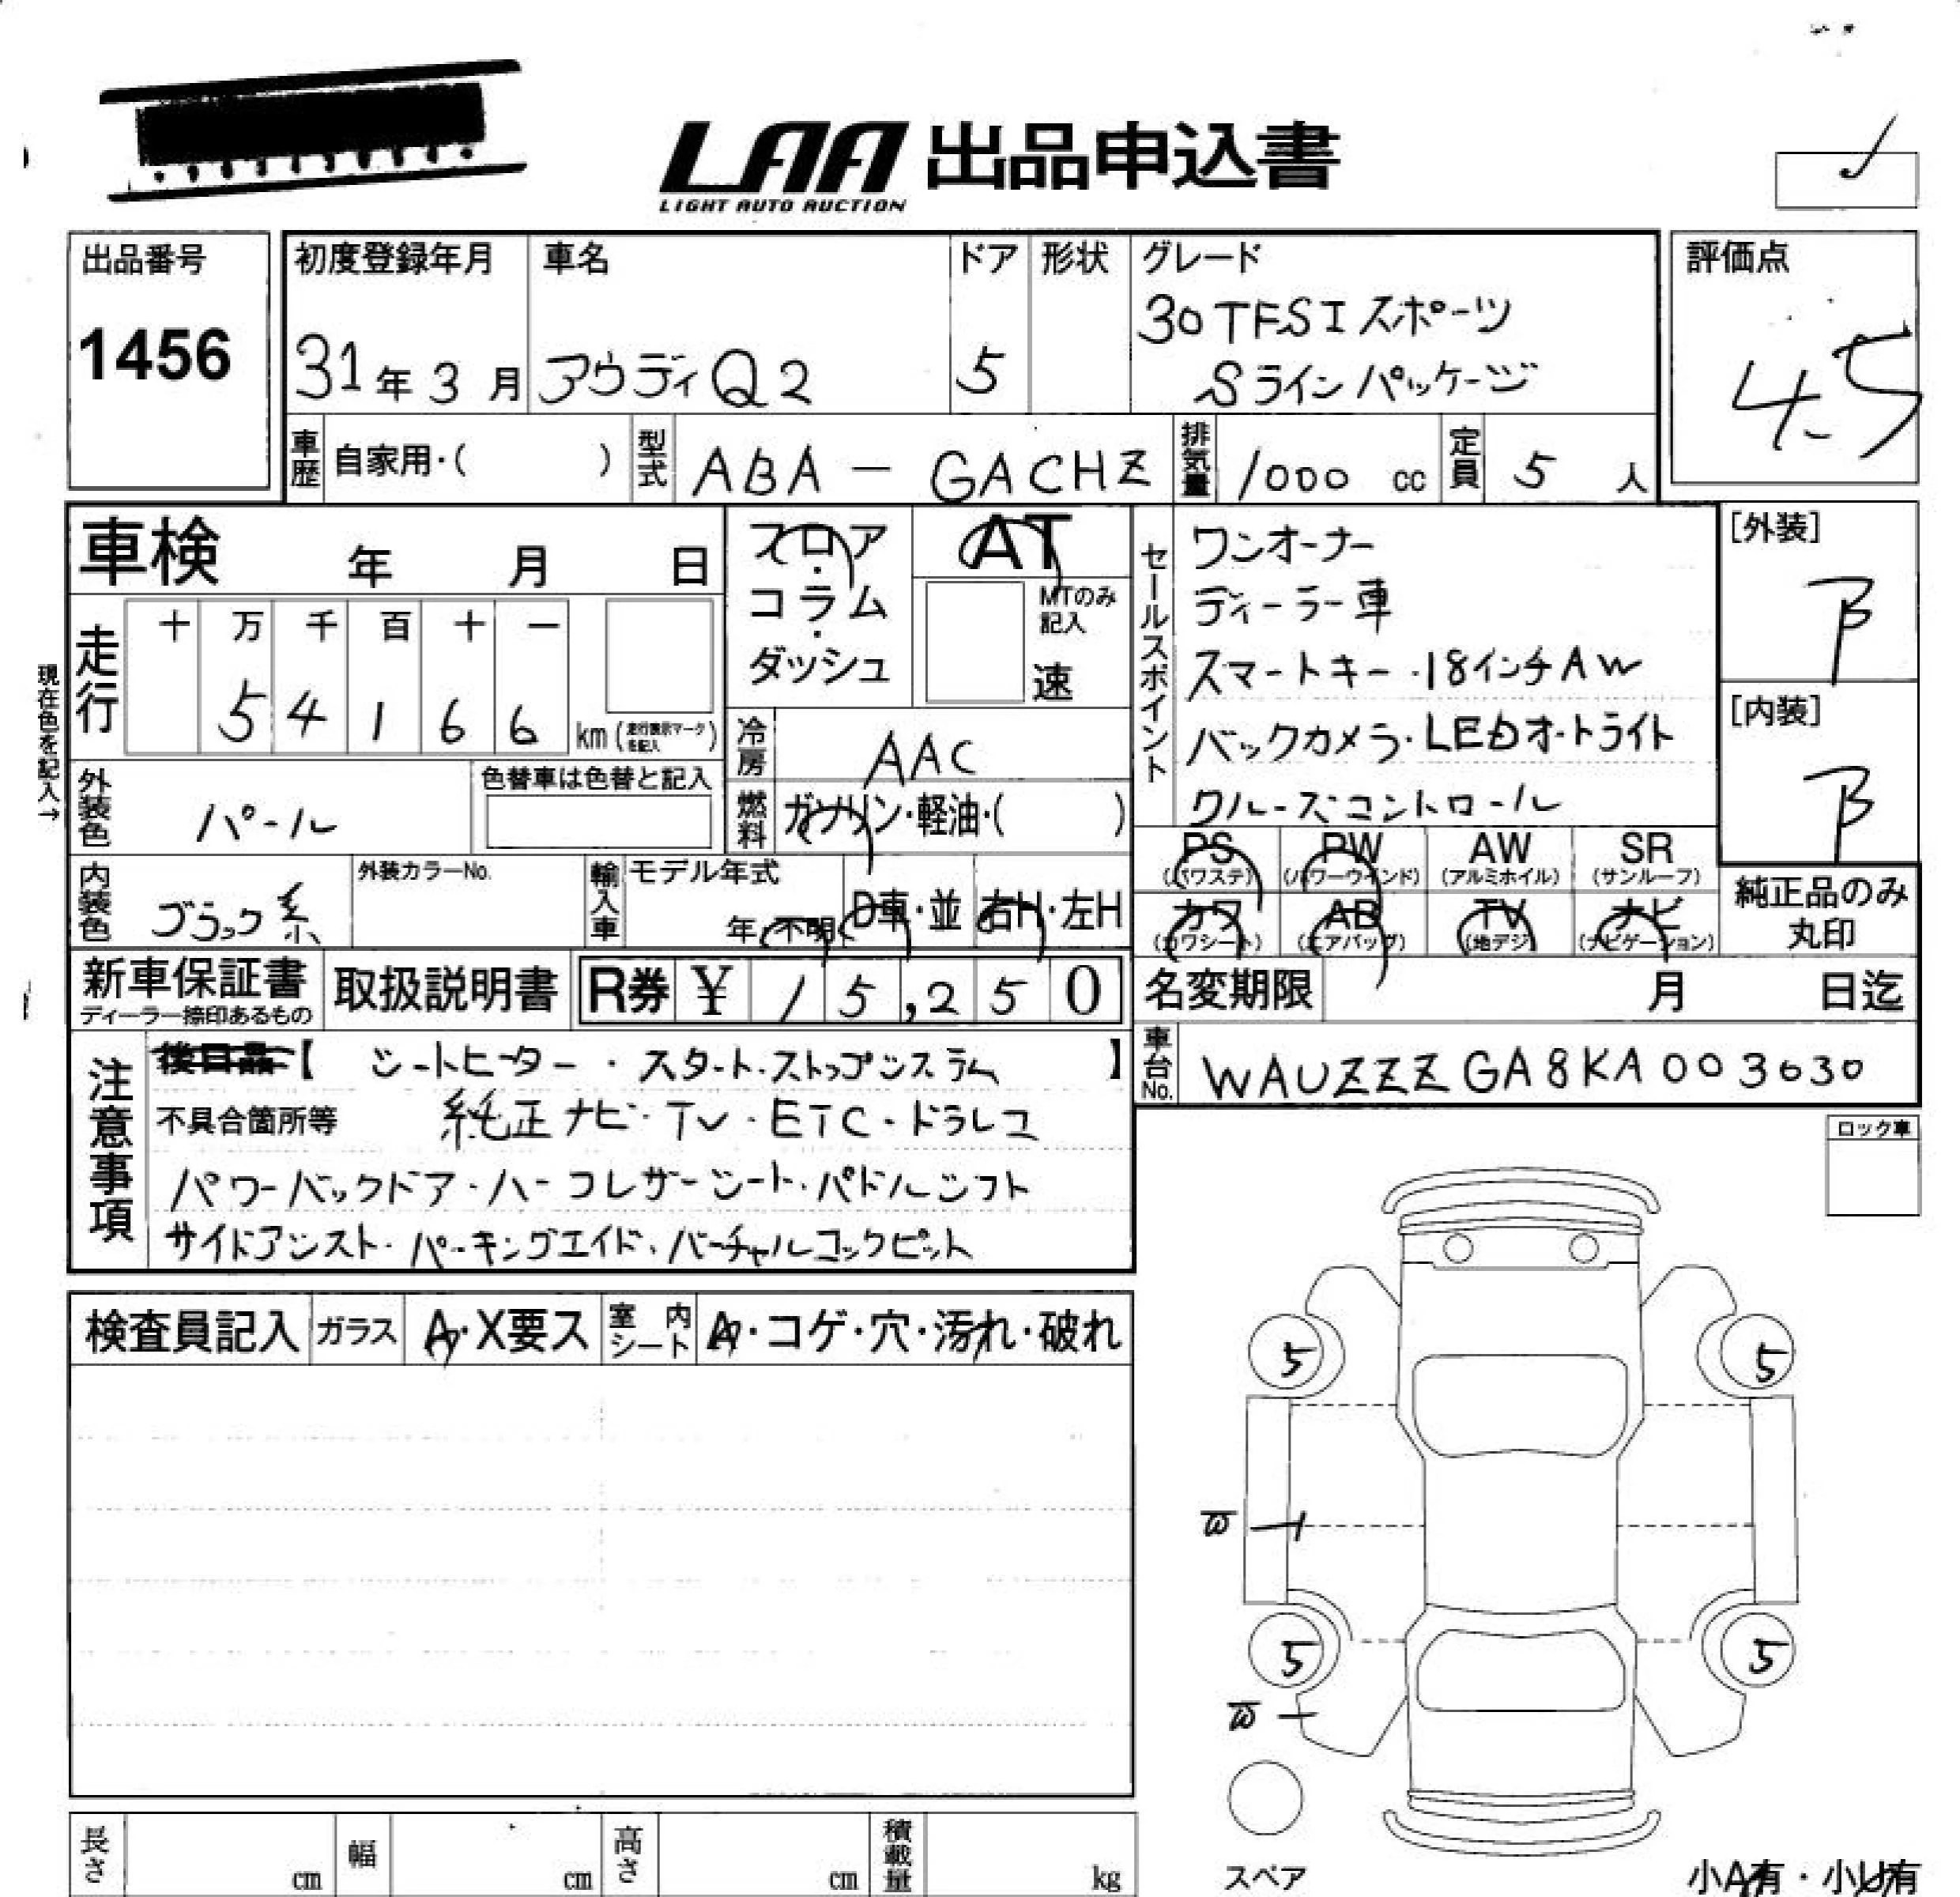 LAA 出品申込書
LIGHT AUTO AUCTION
出品番号
1456
初度登録年月
31年3月
車名
アウディQ2
ドア
5
形状
グレード
30TFSIスポーツ
Sラインパッケージ
評価点
4.5
車歴 自家用・( )
型式 ABA-GACHZ
排気量 1000 cc
定員 5 人
車検 年 月 日
走行 十 万 千 百 十 一
5 4 1 6 6 km (走行表示マークを記入)
現在色を記入→
外装色 パール
色替車は色替と記入
内装色 ブラック系
外装カラーNo.
フロア・コラム・ダッシュ
AT
MTのみ記入
速
冷房 AAC
燃料 ガソリン・軽油・( )
輸入車 モデル年式
年・不明 D車・並 右H・左H
セールスポイント
ワンオーナー
ディーラー車
スマートキー・18インチAW
バックカメラ・LEDオートライト
クルーズコントロール
[外装]
B
[内装]
B
PS (パワステ) PW (パワーウインド) AW (アルミホイル) SR (サンルーフ)
カワ (カワシート) AB (エアバッグ) TV (地デジ) ナビ (ナビゲーション)
純正品のみ丸印
新車保証書
ディーラー捺印あるもの
取扱説明書
R券 ¥ 15,250
名変期限 月 日迄
車台No. WAUZZZGA8KA003030
注意事項
後日品【 シートヒーター・スタートストップシステム 】
不具合箇所等 純正ナビ・TV・ETC・ドラレコ
パワーバックドア・ハーフレザーシート・パドルシフト
サイドアシスト・パーキングエイド・バーチャルコックピット
ロック車
検査員記入 ガラス A・X要ス 室内シート A・コゲ・穴・汚れ・破れ
5 5
W
5 5
W
スペア
長さ cm 幅 cm 高さ cm 積載量 kg
小A有・小U有